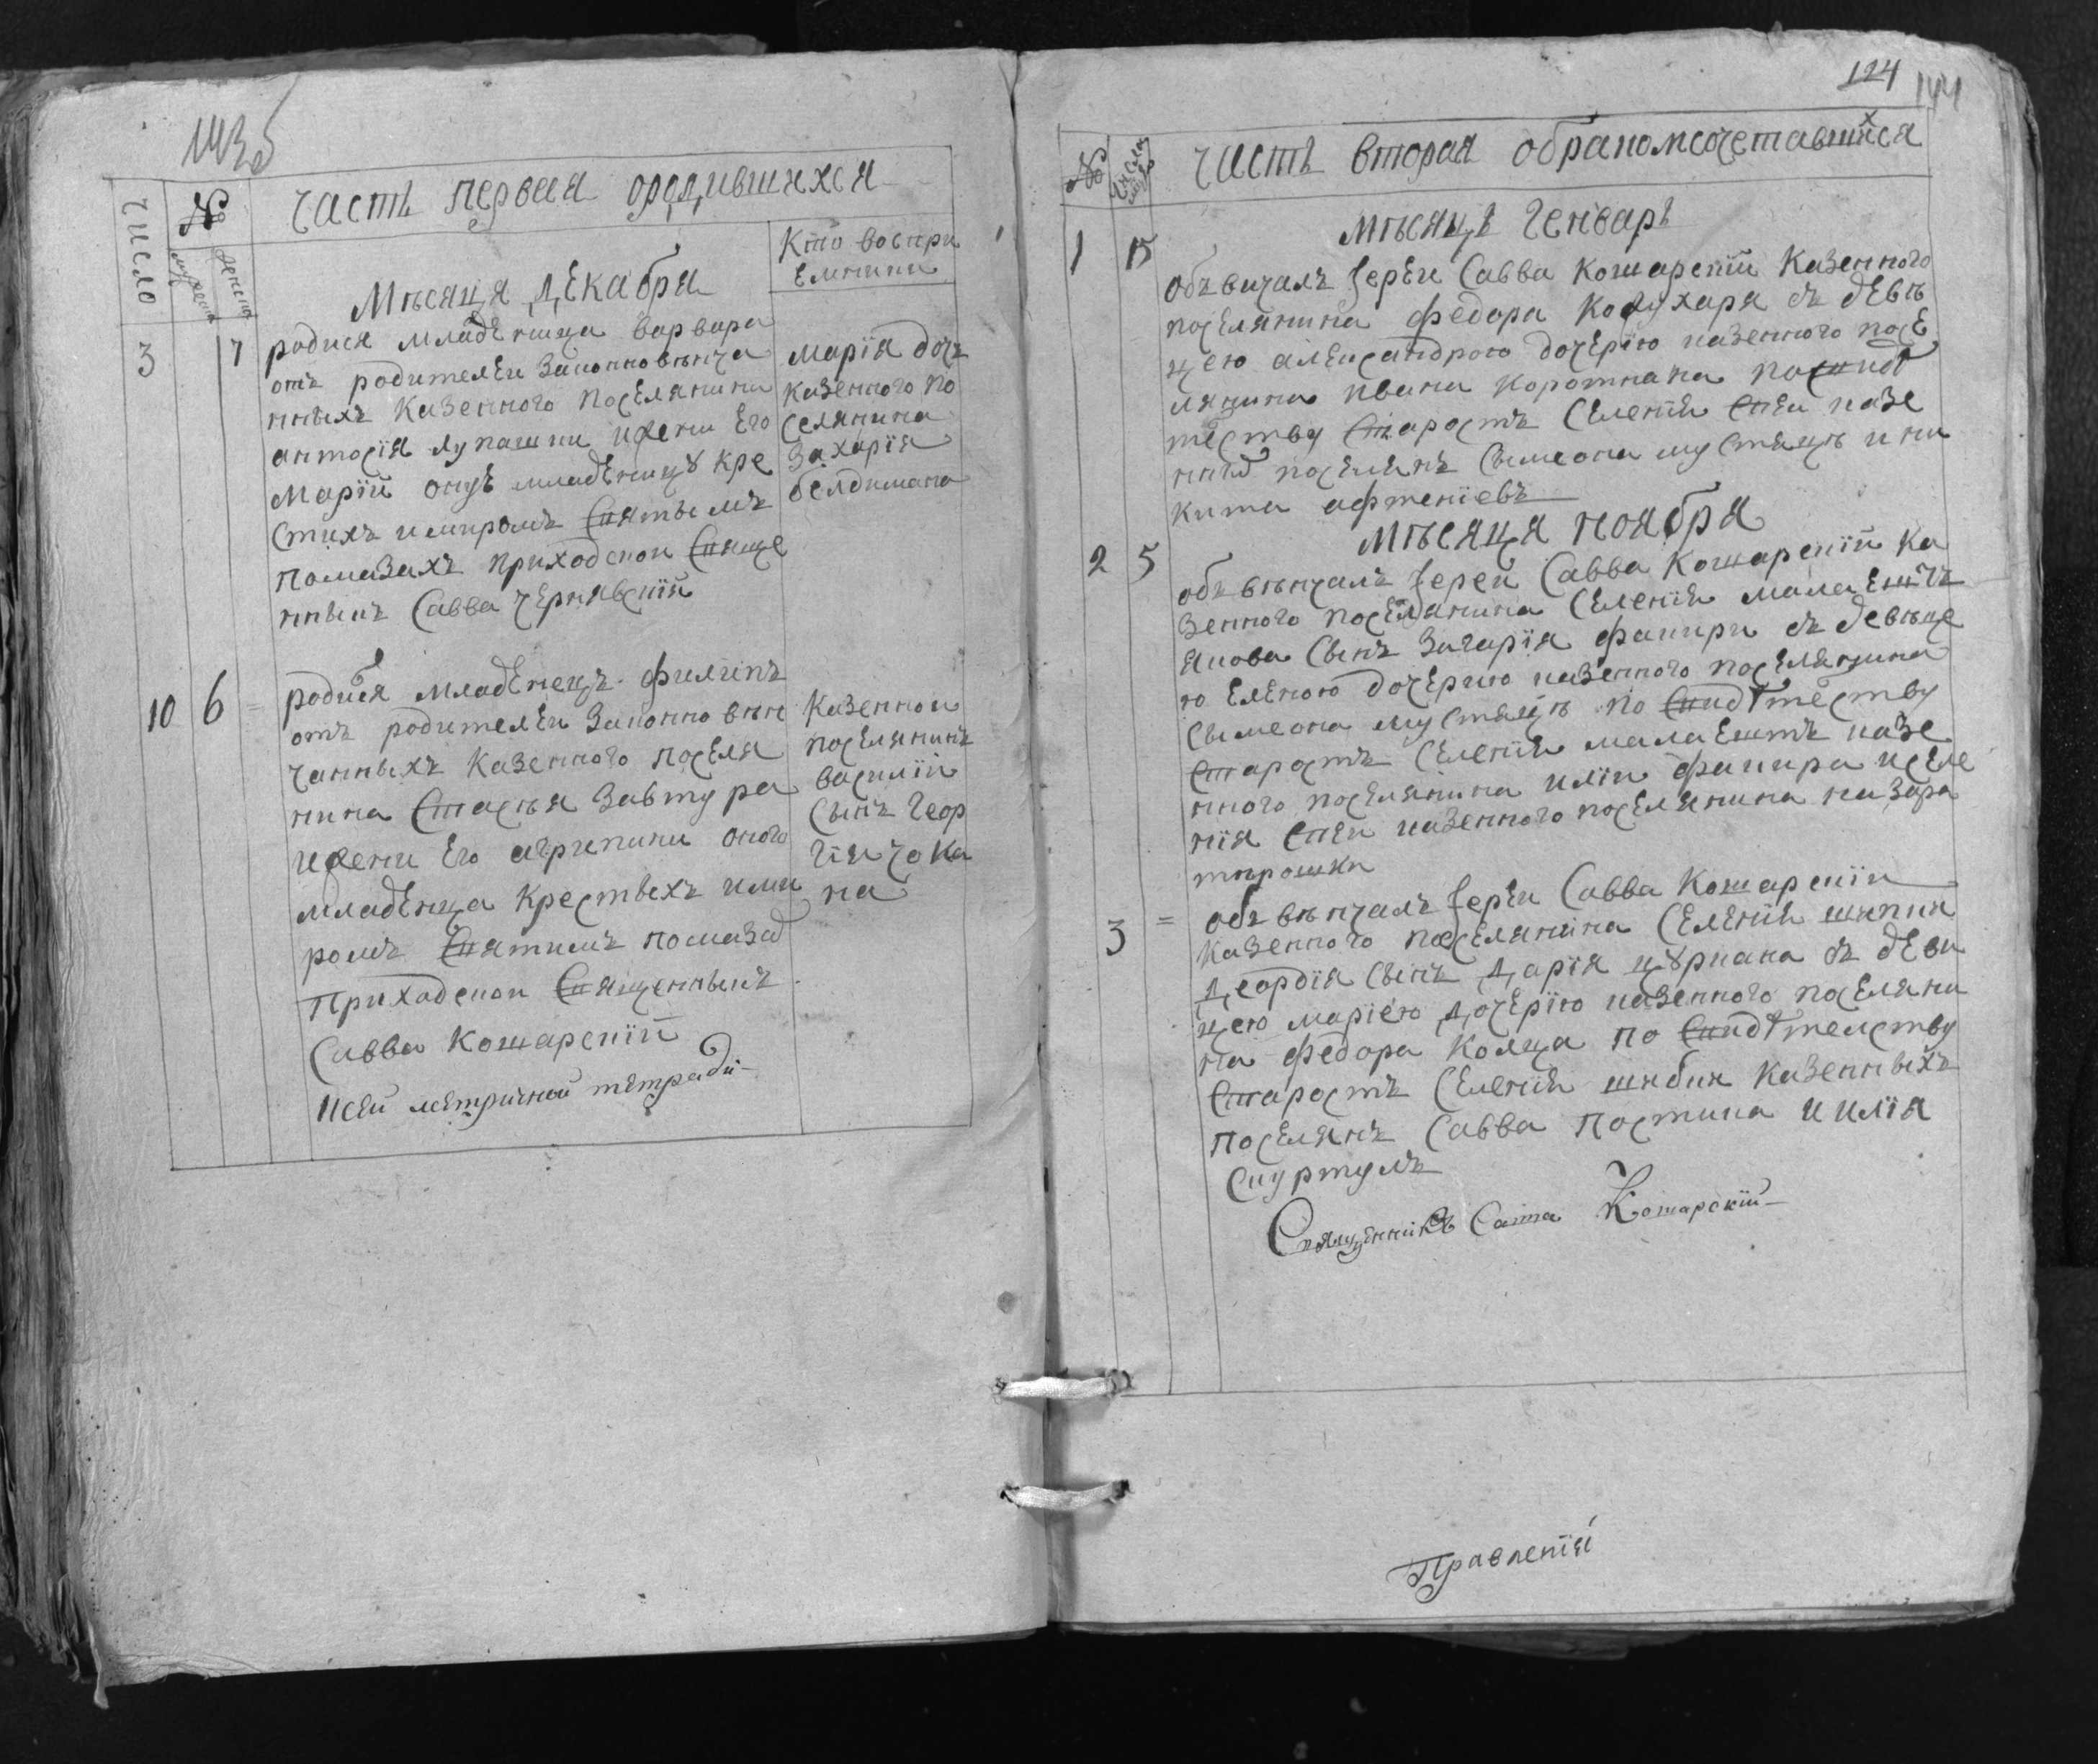 143об
Число
№
мужеска
женска
Часть первая ородившихся
Кто воспри
Емники
Мѣсяца Декабря
3 7
родися младЕница варвара
отъ родителЕи Законновѣнча
нныхъ казенного посЕлянина
антосїя лупашки иЖени Его
Марїи онуѣ младЕницꙋ кре
стихъ имиромъ Святымъ
помазахъ приходскои Свяще
нныкъ Савва чЕрнявскїй
Марїя дочъ
казенного по
селянина
Захарїя
белдимана
10 6 =
родися младЕнецъ филипъ
отъ родителЕи Законно вѣн
чанныхъ казенного посЕля
нина Стасѣя Завтура
иЖени Его агрипини оного
младЕнца крестьхъ ими
ромъ Святимъ помазад
приходскои Священныкъ
Савва Кошарскїй
казеннои
посЕлянинъ
василїи
сынъ Геор
гїя чока
на
ксЕй мЕтричной тЕтради
124
144
№
Числа
Часть вторая обракомсочетавшихся
мѣсяцѣ Генваръ
1 15
обьвичалъ ЇерЕи Савва кошарскїй казенного
посЕлянина федора кожухаря съ дЕвѣ
цею алЕксандрою дочЕрїю казенного посЕ
лянина ивана коротнака посвидѣ
теству Старостъ СелЕнїи СнЕи казе
нныхъ посЕлянъ Сымеона мустяцѣ и ни
кита афтенїевъ
мѣсяця ноября
2 5
обьвѣнчалъ Їереи Савва Кошарскїй ка
зенного посЕлянина СЕленїи малаЕштъ
якова сынъ Загарїя факири съ девѣце
ю Еленою дочЕрию казенного посЕлянина
Сымеона мустяцѣ по Свидѣтеству
Старостъ СЕленїи малаЕштъ казе
нного посЕлянина илїи факира исЕле
нїя СнЕи казенного посЕлянина назара
тирошки
3 =
обьвѣнчалъ ЇерЕи Савва Кошарскїи
казенного посЕлянина СЕлЕнїи шипки
Деордїя сынъ Дарїя цꙋркана съ дЕви
цею марїею ДочЕрїю казенного посЕляни
на федора Колца по Свидѣтелству
Старостъ СЕленїи шибки казенныхъ
посЕлянъ Савва постика и илїя
скуртулъ
Священникъ Савва Кошарскїй
Правленїя